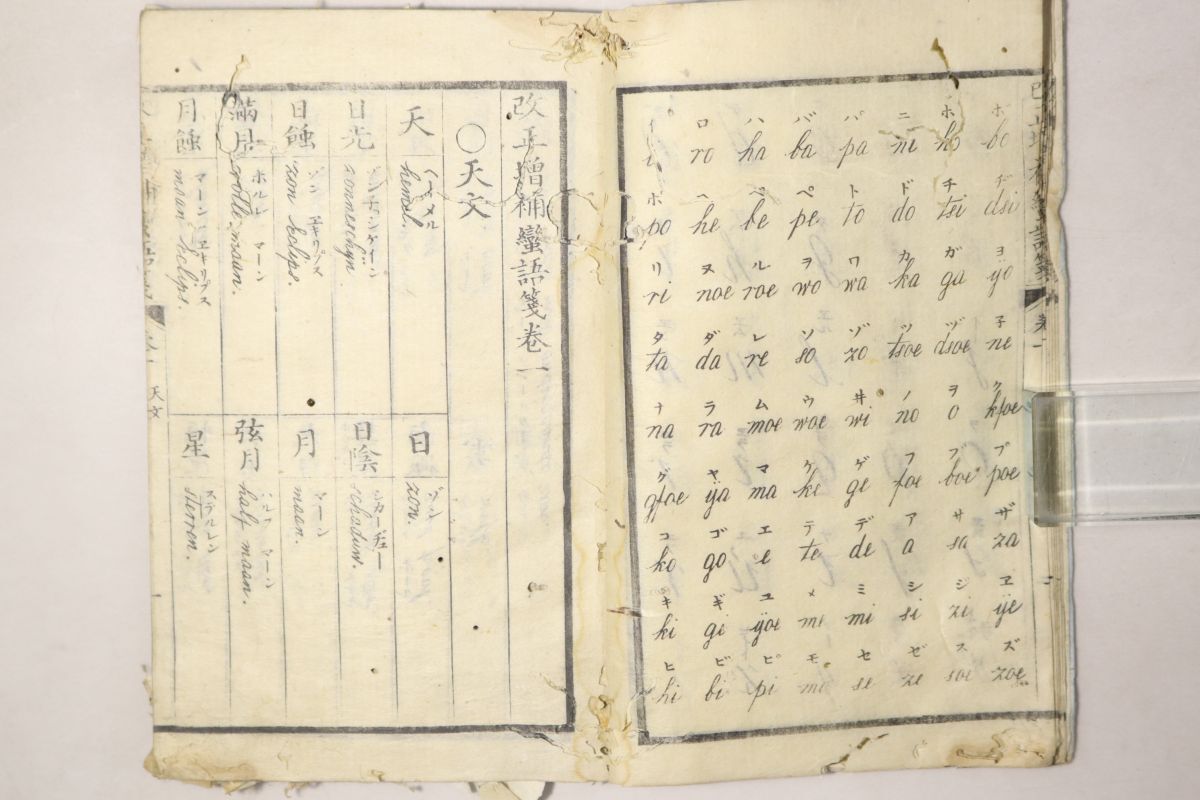 イ ロ ハ バ パ ニ ホ ボ
i ro ha ba pa ni ho bo
ポ ヘ ベ ペ ト ド チ ヂ
po he be pe to do tsi dsi
リ ヌ ル ヲ ワ カ ガ ヨ
ri noe roe wo wa ka ga ÿo
タ ダ レ ソ ゾ ツ ヅ 子
ta da re so zo tsoe dsoe ne
ナ ラ ム ウ 井 ノ ヲ ク
na ra moe woe wi no o kfoe
グ ヤ マ ケ ゲ フ ブ プ
gfoe ÿa ma ke ge foe boe poe
コ ゴ エ テ デ ア サ ザ
ko go e te de a sa za
キ ギ ユ メ ミ シ ジ ヱ
ki gi ÿoe me mi si zi ÿe
ヒ ビ ピ モ セ ゼ ス ズ
hi bi pi mo se ze soe zoe
改正増補蠻語箋卷一
〇天文
天 ヘーメル hemel.
日 ゾン zon.
日光 ゾンチシケーン zonneschÿn.
日陰 シカーデュー schaduw.
日蝕 ゾン エキリプス zon eclips.
月 マーン maan.
滿月 ホルレ マーン volle maan.
弦月 ハルフ マーン half maan.
月蝕 マーン エキリプス maan eclips.
星 ステルレン sterren.
天文